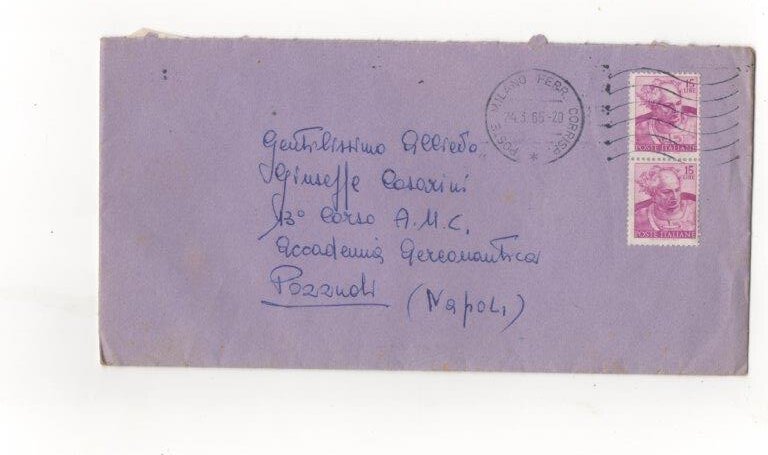 POSTE MILANO FERR. CORRISP.
24.3.65-20
15
LIRE
POSTE ITALIANE
15
LIRE
POSTE ITALIANE
Gentilissimo Allievo
Giuseppe Casarini
13° Corso A.M.C.
Accademia Aereonautica
Pozzuoli (Napoli)